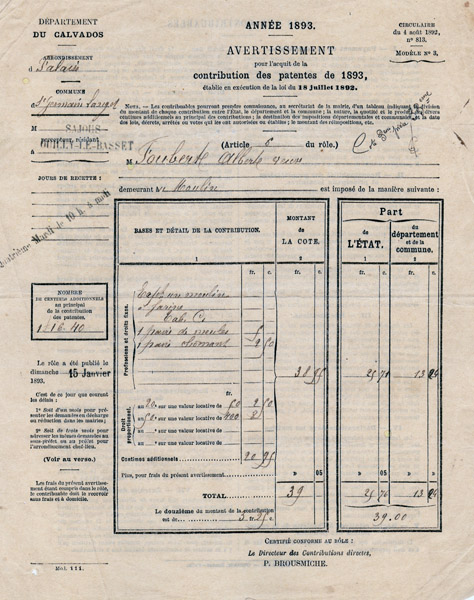 DÉPARTEMENT
DU CALVADOS
ARRONDISSEMENT
d Falaise
COMMUNE
St Germain Langot
M
SAJOUS
OUILLY-LE-BASSET
percepteur, résidant
à
JOURS DE RECETTE :
Quatrième Mardi de 10 h. à midi
NOMBRE
DE CENTIMES ADDITIONNELS
au principal
de la contribution
des patentes.
1 16 40
Le rôle a été publié le
dimanche 15 Janvier
1893.
C'est de ce jour que courent
les délais :
1° Soit d'un mois pour présenter les demandes en décharge
ou réduction dans les mairies ;
2° Soit de trois mois pour
adresser les mêmes demandes au
sous-préfet ou au préfet pour
l'arrondissement chef-lieu.
(Voir au verso.)
Les frais du présent avertissement
étant compris dans le rôle,
le contribuable doit le recevoir
sans frais et à domicile.
Mol. 111.
ANNÉE 1893.
AVERTISSEMENT
pour l'acquit de la
contribution des patentes de 1893,
établie en exécution de la loi du 18 juillet 1892.
CIRCULAIRE
du 4 août 1892,
n° 813.
MODÈLE N° 3.
NOTA. — Les contribuables pourront prendre connaissance, au secrétariat de la mairie, d'un tableau indiquant
du montant de chaque contribution entre l'État, le département et la commune ; la nature, la quotité et le produit
centimes additionnels au principal des contributions ; la destination des impositions départementales et communales et la date
des lois, décrets, arrêtés ou votes qui les ont autorisées ou établies ; le montant des réimpositions, etc.
(Article 5 du rôle.)
M Foubert Albert
demeurant à Moulin est imposé de la manière suivante :
BASES ET DÉTAIL DE LA CONTRIBUTION.
MONTANT
de
LA COTE.
Part
de
L'ÉTAT.
du
département
et de la
commune.
1 2 1 2
fr. c. fr. c. fr. c. fr. c.
Professions et droits fixes.
moulin
farine
1 paire de meules
38 95 25 71 13 24
Droit proportionnel.
fr.
au 20e sur une valeur locative de 50 2 50
au sur une valeur locative de
au e sur une valeur locative de
Centimes additionnels 20 95
Plus, pour frais du présent avertissement » 05 » 05
TOTAL 39 25 76 13 24
39.00
Le douzième du montant de la contribution
est de 3 fr. 25 c.
CERTIFIÉ CONFORME AU RÔLE :
Le Directeur des Contributions directes,
P. BROUSMICHE.